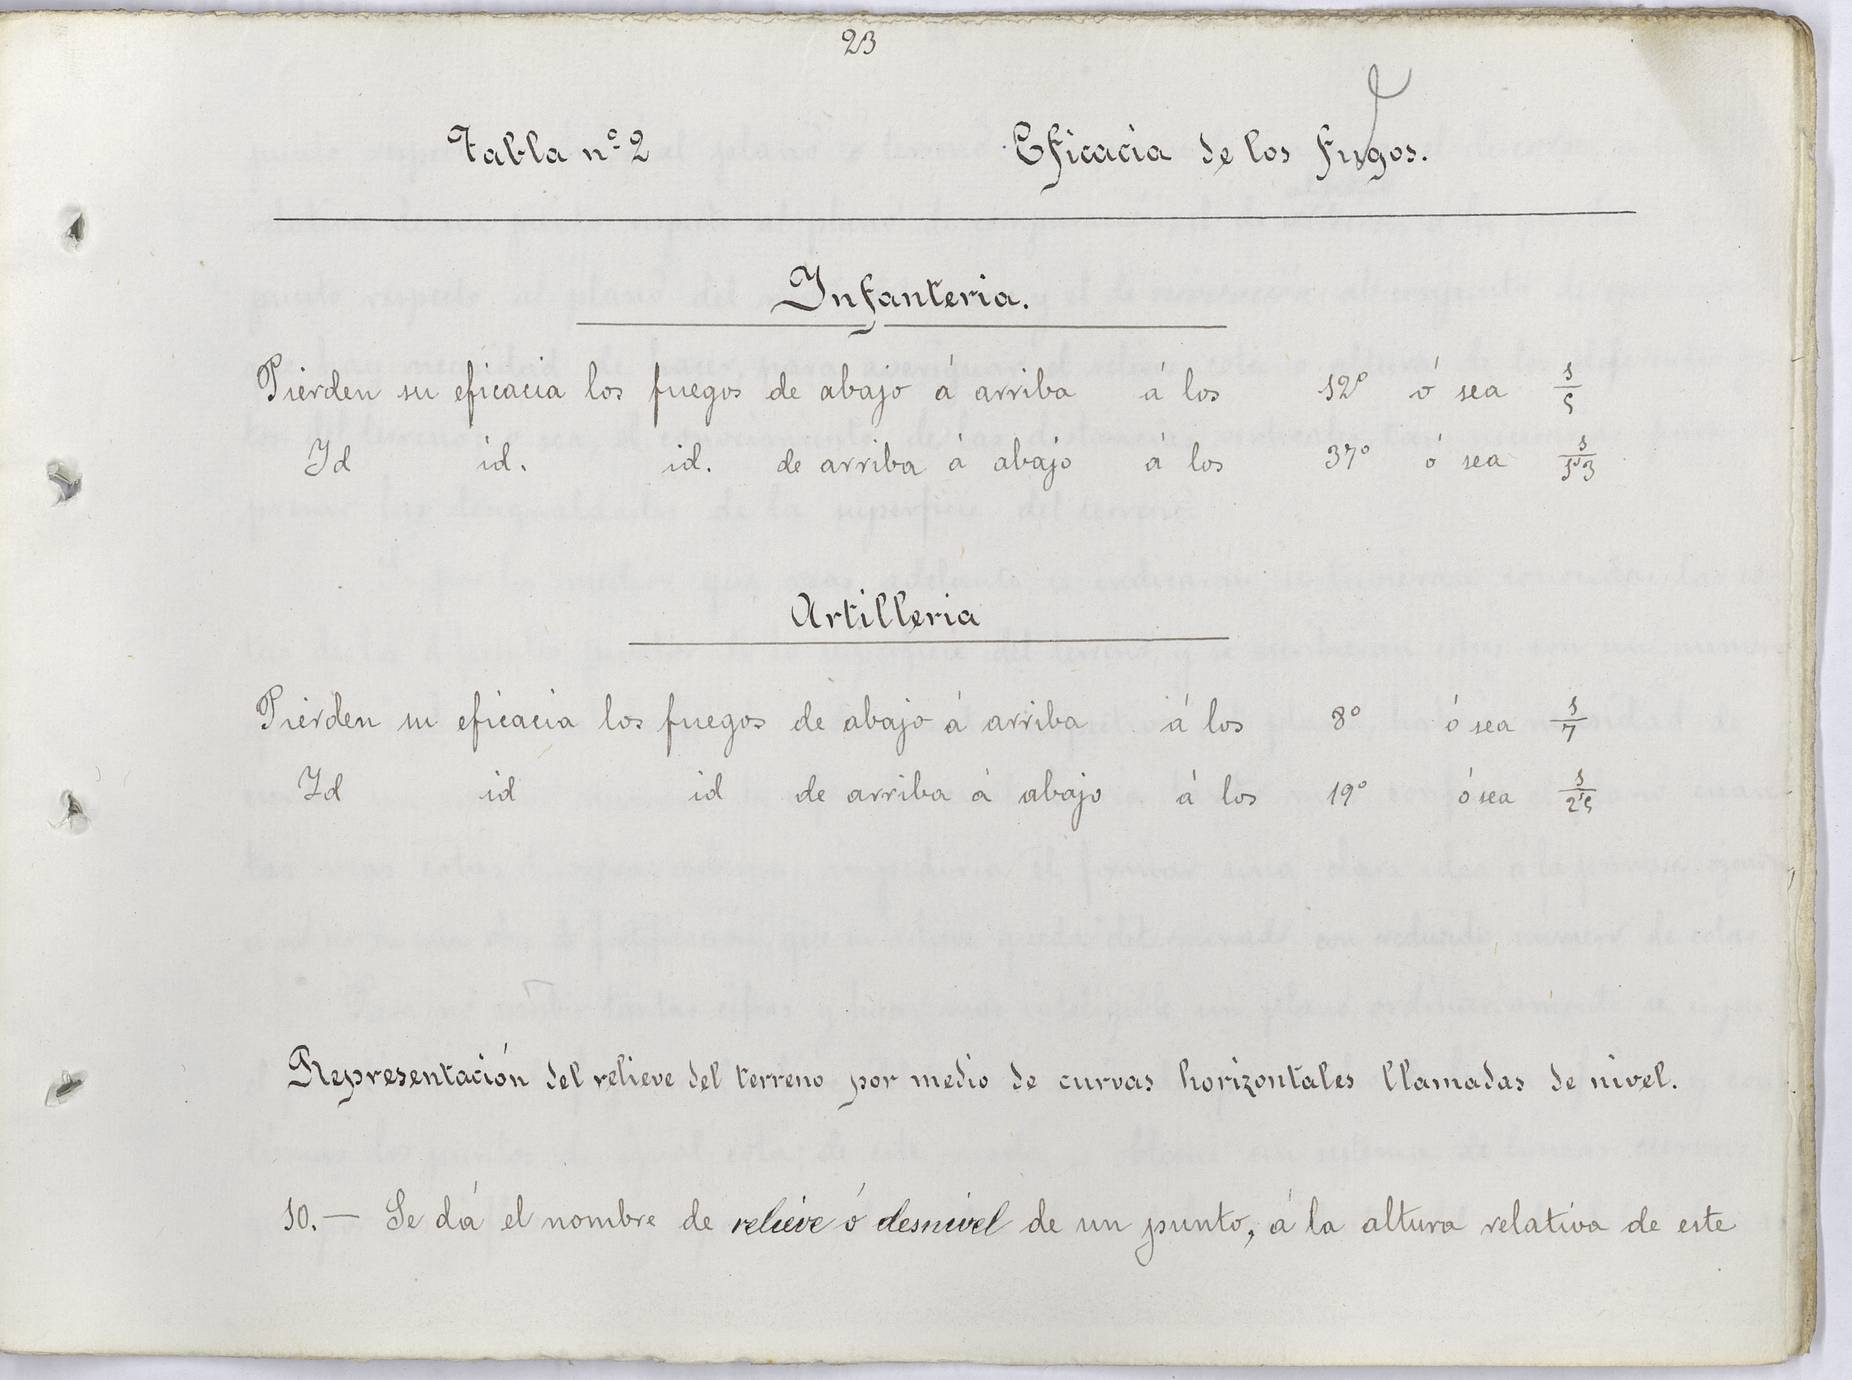 23
Tabla nº 2 Eficacia de los fugos.
e
Infanteria.
Pierden su eficacia los fuegos de abajo á arriba á los 12º ó sea 1/5
Id id. id. de arriba á abajo á los 37º ó sea 1/1'3
Artilleria
Pierden su eficacia los fuegos de abajo á arriba á los 8º ó sea 1/7
Id id id de arriba á abajo á los 19º ó sea 1/2'5
Representación del relieve del terreno por medio de curvas horizontales llamadas de nivel.
10.— Se dá el nombre de relieve ó desnivel de un punto, á la altura relativa de este